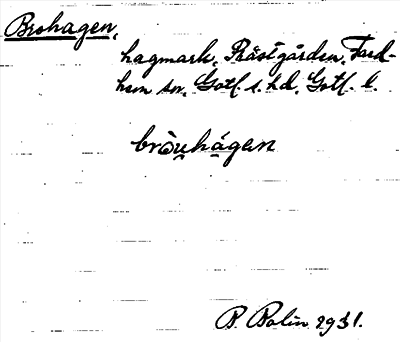 Brohagen,
hagmark, Prästgården, Fard-
hem sn, Gotl. s. hd, Gotl. l.
bròu̯hágen
B. Bolin 1931.